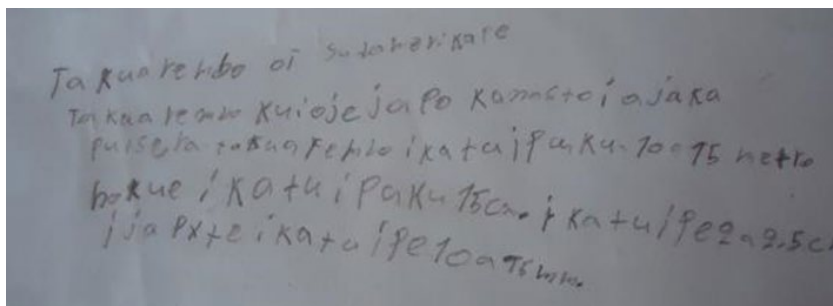 Takuarembo oĩ sudamerikare
Takuarembo kuioje japo kanasto i ajaka
pulsera takuarembo ikatu ipuku 10 a 15 metro
hokue ikatu ipuku 15cm. ikatu ipe 2 a 2.5 c
ija pyte ikatu ipe 10 a 15 mm.